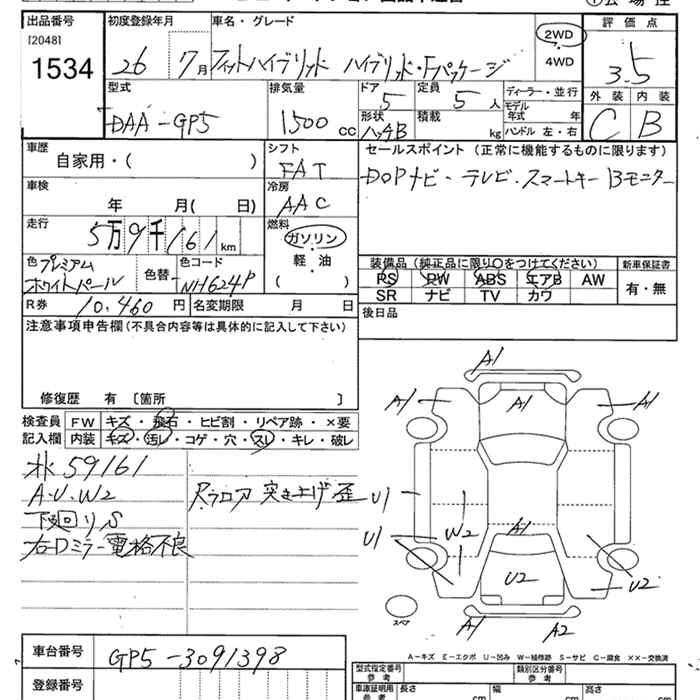 出品番号
[2048]
1534
初度登録年月
26 7月
車名・グレード
フィットハイブリッド ハイブリッド・Fパッケージ
2WD
・
4WD
評価点
3.5
外装 内装
C B
型式
DAA-GP5
排気量
1500 cc
ドア
5
定員
5 人
形状
ハッチB
積載
kg
ディーラー・並行
モデル
年式 年
ハンドル 左・右
車歴
自家用・( )
シフト
FAT
セールスポイント (正常に機能するものに限ります)
DOPナビ・テレビ・スマートキー Bモニター
車検
年 月( 日)
冷房
AAC
走行
5万9千161km
燃料
ガソリン
軽・油
( )
色 プレミアム
ホワイトパール
色替
色コード
NH624P
装備品 (純正品に限り○をつけてください)
新車保証書
PS PW ABS エアB AW
SR ナビ TV カワ
有・無
R券 10,460 円
名変期限 月 日
後日品
注意事項申告欄 (不具合内容等は具体的に記入して下さい)
修復歴 有 〔箇所 〕
検査員
記入欄
FW キズ・飛石・ヒビ割・リペア跡・×要
内装 キズ・汚レ・コゲ・穴・スレ・キレ・破レ
メ 59161
A・U・W2
下廻りS
右Dミラー電格不良
Rフロア 突き上げ歪
A1
A1
A1
A1
U1
U1
W2
A1
U2
U2
A1
A2
スペア
A－キズ E－エクボ U－凹み W－補修跡 S－サビ C－腐食 ××－交換済
車台番号
GP5-3091398
登録番号
型式指定番号
参考
類別区分番号
参考
車庫証明用
参考
長さ cm
幅 cm
高さ cm